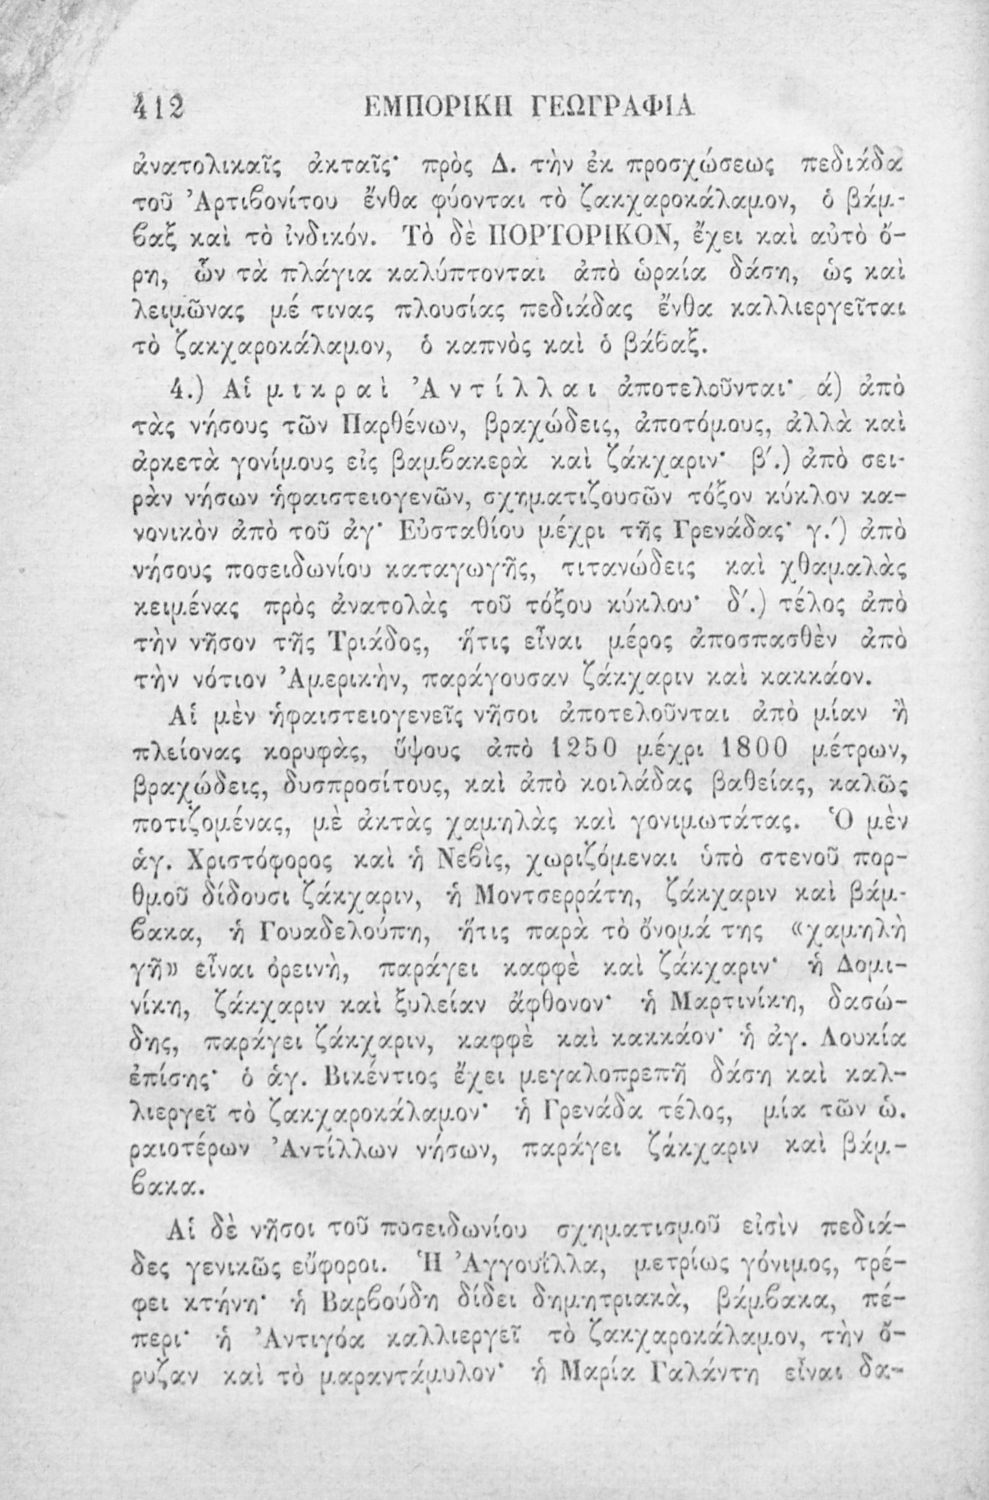 412 ΕΜΠΟΡΙΚΗ ΓΕΩΓΡΑΦΙΑ
ἀνατολικαῖς ἀκταῖς· πρὸς Δ. τὴν ἐκ προσχώσεως πεδιάδα
τοῦ Ἀρτιβονίτου ἔνθα φύονται τὸ ζακχαροκάλαμον, ὁ βάμ-
βαξ καὶ τὸ ἰνδικόν. Τὸ δὲ ΠΟΡΤΟΡΙΚΟΝ, ἔχει καὶ αὐτὸ ὄ-
ρη, ὧν τὰ πλάγια καλύπτονται ἀπὸ ὡραία δάση, ὡς καὶ
λειμῶνας μέ τινας πλουσίας πεδιάδας ἔνθα καλλιεργεῖται
τὸ ζακχαροκάλαμον, ὁ καπνὸς καὶ ὁ βάβαξ.
4.) Αἱ μικραὶ Ἀντίλλαι ἀποτελοῦνται· ά) ἀπὸ
τὰς νήσους τῶν Παρθένων, βραχώδεις, ἀποτόμους, ἀλλὰ καὶ
ἀρκετὰ γονίμους εἰς βαμβακερὰ καὶ ζάκχαριν· β΄.) ἀπὸ σει-
ρὰν νήσων ἡφαιστειογενῶν, σχηματιζουσῶν τόξον κύκλον κα-
νονικὸν ἀπὸ τοῦ ἁγ· Εὐσταθίου μέχρι τῆς Γρενάδας· γ.΄) ἀπὸ
νήσους ποσειδωνίου καταγωγῆς, τιτανώδεις καὶ χθαμαλὰς
κειμένας πρὸς ἀνατολὰς τοῦ τόξου κύκλου· δ΄.) τέλος ἀπὸ
τὴν νῆσον τῆς Τριάδος, ἥτις εἶναι μέρος ἀποσπασθὲν ἀπὸ
τὴν νότιον Ἀμερικὴν, παράγουσαν ζάκχαριν καὶ κακκάον.
Αἱ μὲν ἡφαιστειογενεῖς νῆσοι ἀποτελοῦνται ἀπὸ μίαν ἢ
πλείονας κορυφὰς, ὕψους ἀπὸ 1250 μέχρι 1800 μέτρων,
βραχώδεις, δυσπροσίτους, καὶ ἀπὸ κοιλάδας βαθείας, καλῶς
ποτιζομένας, μὲ ἀκτὰς χαμηλὰς καὶ γονιμωτάτας. Ὁ μὲν
ἁγ. Χριστόφορος καὶ ἡ Νεβὶς, χωριζόμεναι ὑπὸ στενοῦ πορ-
θμοῦ δίδουσι ζάκχαριν, ἡ Μοντσερράτη, ζάκχαριν καὶ βάμ-
βακα, ἡ Γουαδελούπη, ἥτις παρὰ τὸ ὄνομά της «χαμηλὴ
γῆ» εἶναι ὀρεινὴ, παράγει καφφὲ καὶ ζάκχαριν· ἡ Δομι-
νίκη, ζάκχαριν καὶ ξυλείαν ἄφθονον· ἡ Μαρτινίκη, δασώ-
δης, παράγει ζάκχαριν, καφφὲ καὶ κακκάον· ἡ ἁγ. Λουκία
ἐπίσης· ὁ ἁγ. Βικέντιος ἔχει μεγαλοπρεπῆ δάση καὶ καλ-
λιεργεῖ τὸ ζακχαροκάλαμον· ἡ Γρενάδα τέλος, μία τῶν ὡ.
ραιοτέρων Ἀντίλλων νήσων, παράγει ζάκχαριν καὶ βάμ-
βακα.
Αἱ δὲ νῆσοι τοῦ ποσειδωνίου σχηματισμοῦ εἰσὶν πεδιά-
δες γενικῶς εὔφοροι. Ἡ Ἀγγουΐλλα, μετρίως γόνιμος, τρέ-
φει κτήνη· ἡ Βαρβούδη δίδει δημητριακὰ, βάμβακα, πέ-
περι· ἡ Ἀντιγόα καλλιεργεῖ τὸ ζακχαροκάλαμον, τὴν ὄ-
ρυζαν καὶ τὸ μαραντάμυλον· ἡ Μαρία Γαλάντη εἶναι δα-